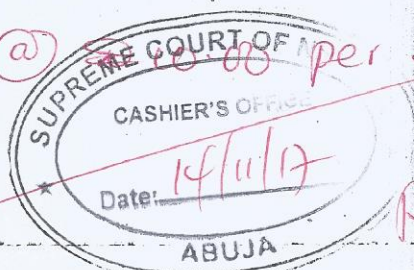 @ ₦ 10.00 per
SUPREME COURT OF
CASHIER'S OFFICE
Date: 14/11/17
ABUJA